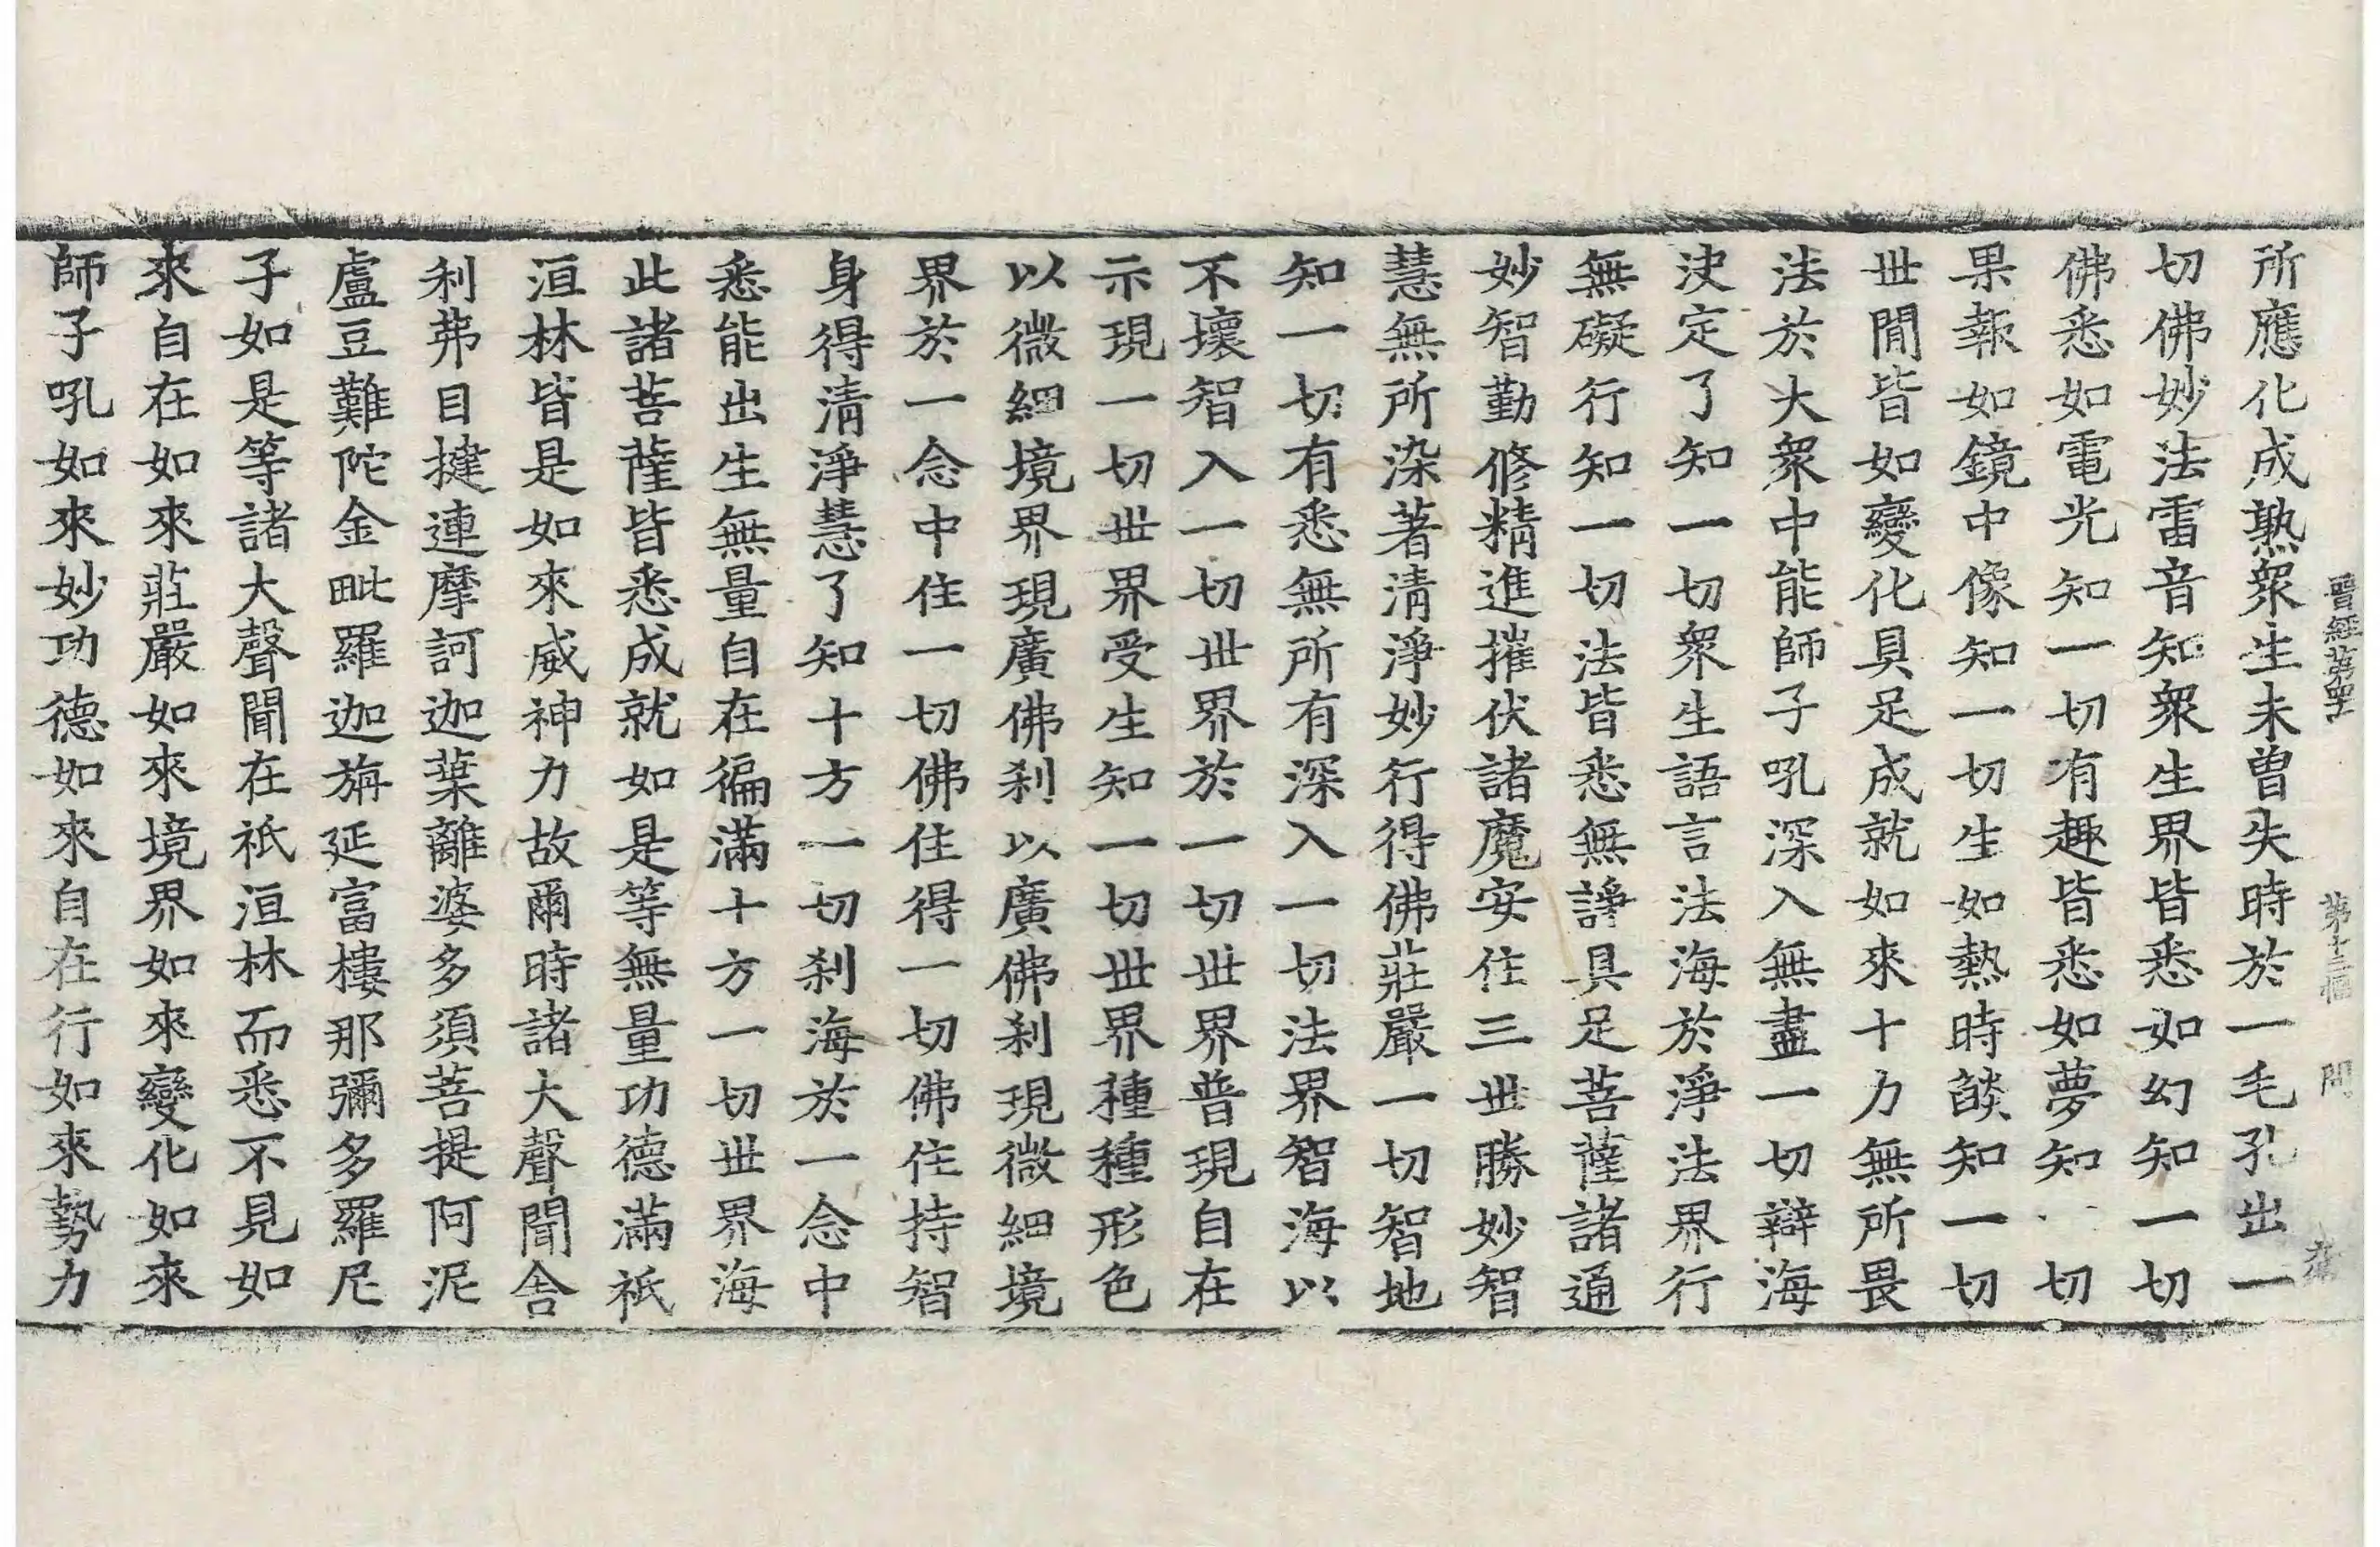 晉經第四十四 第十二幅 問
所應化成熟衆生未曽失時於一毛孔出一
切佛妙法雷音知衆生界皆悉如幻知一切
佛悉如電光知一切有趣皆悉如夢知切
果報如鏡中像知一切生如熱時燄知一切
世間皆如變化具足成就如來十力無所畏
法於大衆中能師子吼深入無盡一切辯海
決定了知一切衆生語言法海於淨法界行
無礙行知一切法皆悉無諍具足菩薩諸通
妙智勤修精進摧伏諸魔安住三世勝妙智
慧無所染著清淨妙行得佛莊嚴一切智地
知一切有悉無所有深入一切法界智海以
不壞智入一切世界於一切世界普現自在
示現一切世界受生知一切世界種種形色
以微細境界現廣佛刹以廣佛刹現微細境
界於一念中住一切佛住得一切佛住持智
身得清淨慧了知十方一切刹海於一念中
悉能出生無量自在徧滿十方一切世界海
此諸菩薩皆悉成就如是等無量功德滿祇
洹林皆是如來威神力故爾時諸大聲聞舍
利弗目揵連摩訶迦葉離婆多須菩提阿泥
盧豆難陀金毗羅迦旃延富樓那彌多羅尼
子如是等諸大聲聞在祇洹林而悉不見如
來自在如來莊嚴如來境界如來變化如來
師子吼如來妙功德如來自在行如來勢力